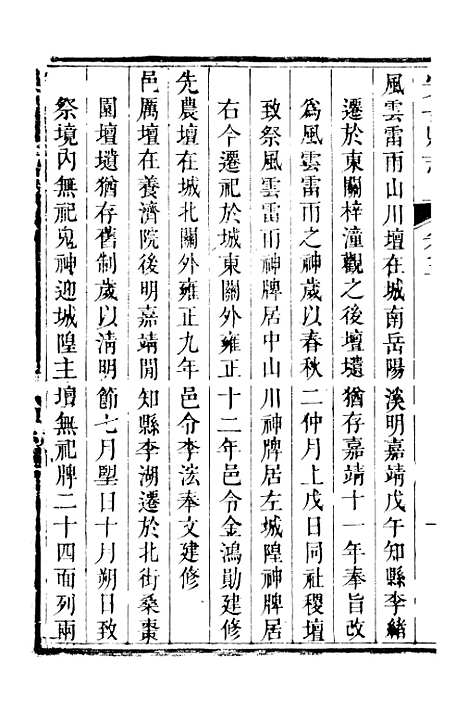 風雲雷雨山川壇在城南岳陽溪明嘉靖戊午知縣李緒
遷於東關梓潼觀之後壇壝猶存嘉靖十一年奉旨改
爲風雲雷雨之神歲以春秋二仲月上戊日同社稷壇
致祭風雲雷雨神牌居中山川神牌居左城隍神牌居
右今遷祀於城東關外雍正十二年邑令金鴻勛建修
先農壇在城北關外雍正九年邑令李法奉文建修
邑厲壇在養濟院後明嘉靖間知縣李湖遷於北街桑棗
園壇壝猶存舊制歲以淸明節七月朢日十月朔日致
祭境內無祀鬼神迎城隍主壇無祀牌二十四面列兩